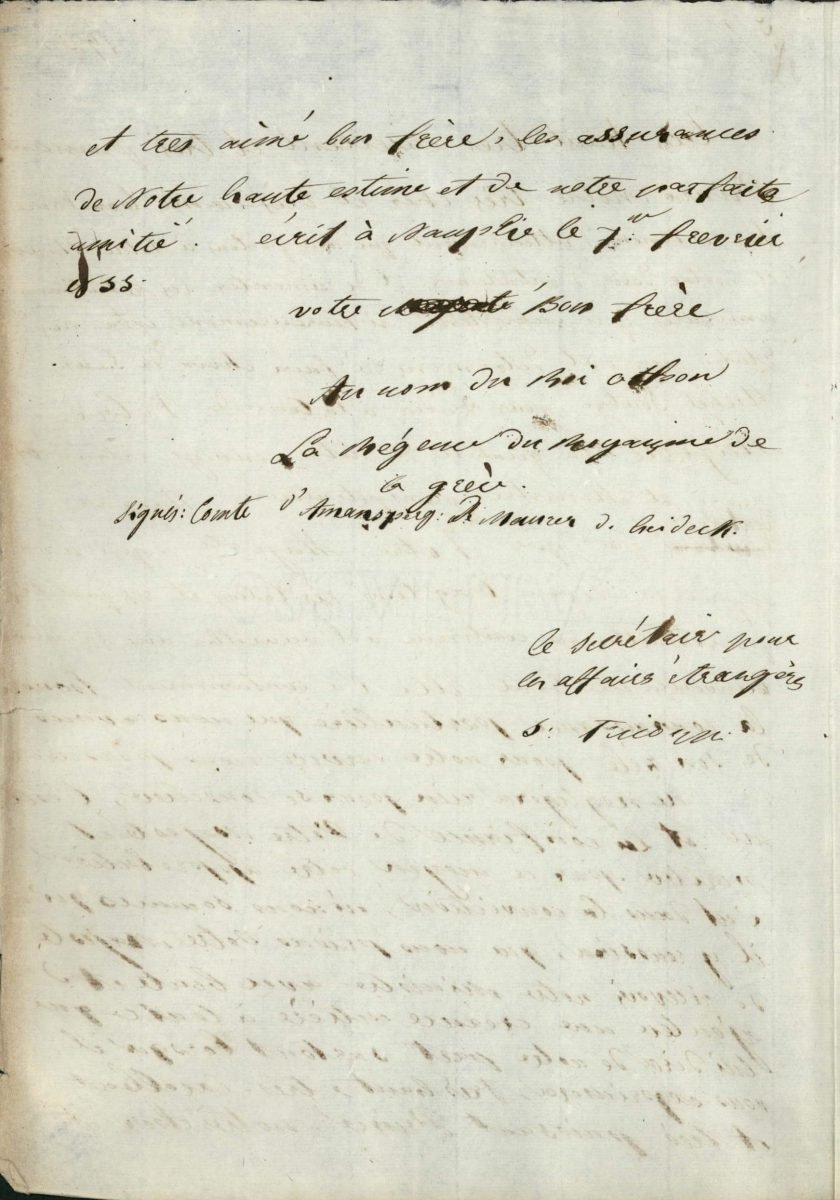 et tres aimé bon frère, les assurances
de Notre haute estime et de notre parfaite
amitié. écrit à Nauplie le 7. fevrier
1833.
votre Bon frère
Au nom du Roi othon
La Régence du Royaume de
la grèce.
signés: Comte d'Armansperg: de Maurer d. heideck.
le secrétair pour
les affaires étrangères
S: